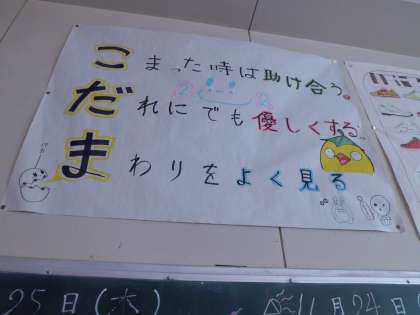 こまった時は助け合う。
だれにでも優しくする。
まわりをよく見る
25日(木)
11月24日